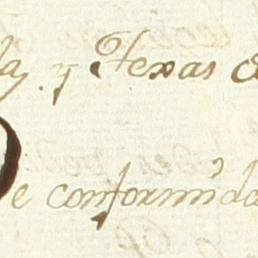 y Texas
De conformida